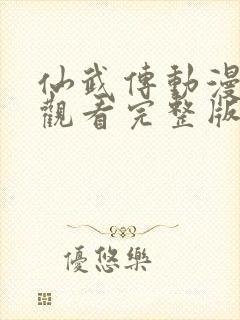 仙武傳動漫
觀看完整版
優悠樂